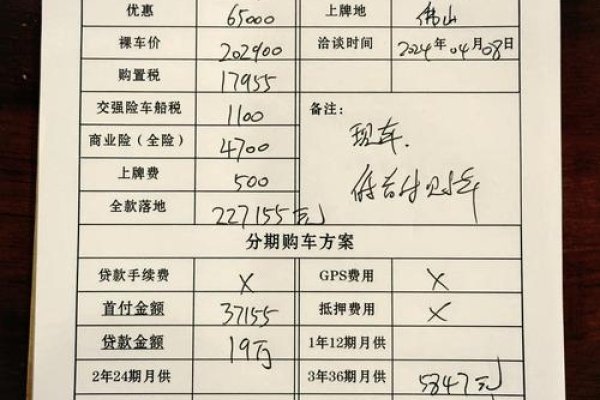 优惠 65000 上牌地 佛山
裸车价 202900 洽谈时间 2024年04月08日
购置税 17955
交强险车船税 1100 备注:
商业险(全险) 4700 现车.
上牌费 500 低首付购车
全款落地 227155元
分期购车方案
贷款手续费 X GPS费用 X
首付金额 37155 抵押费用 X
贷款金额 19万 1年12期月供
2年24期月供 3年36期月供 5847元